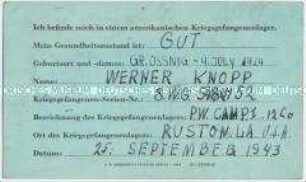 Ich befinde mich in einem amerikanischen Kriegsgefangenenlager.
Mein Gesundheitszustand ist: GUT
Geburtsort und -datum: GROSSNIG - 4. JULY 1924
Name: WERNER KNOPP
Kriegsgefangenen-Serien-Nr.: 8.W.G.
Bezeichnung des Kriegsgefangenenlagers: P.W. CAMP
Ort des Kriegsgefangenenlagers: RUSTON. LA. U.S.A.
Datum: 25. SEPTEMBER 1943
DEUTSCHES HISTORISCHES MUSEUM